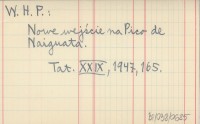 W. H. P.:
Nowe wejście na Pico de
Naiguata.
Tat. XXIX, 1947, 165.